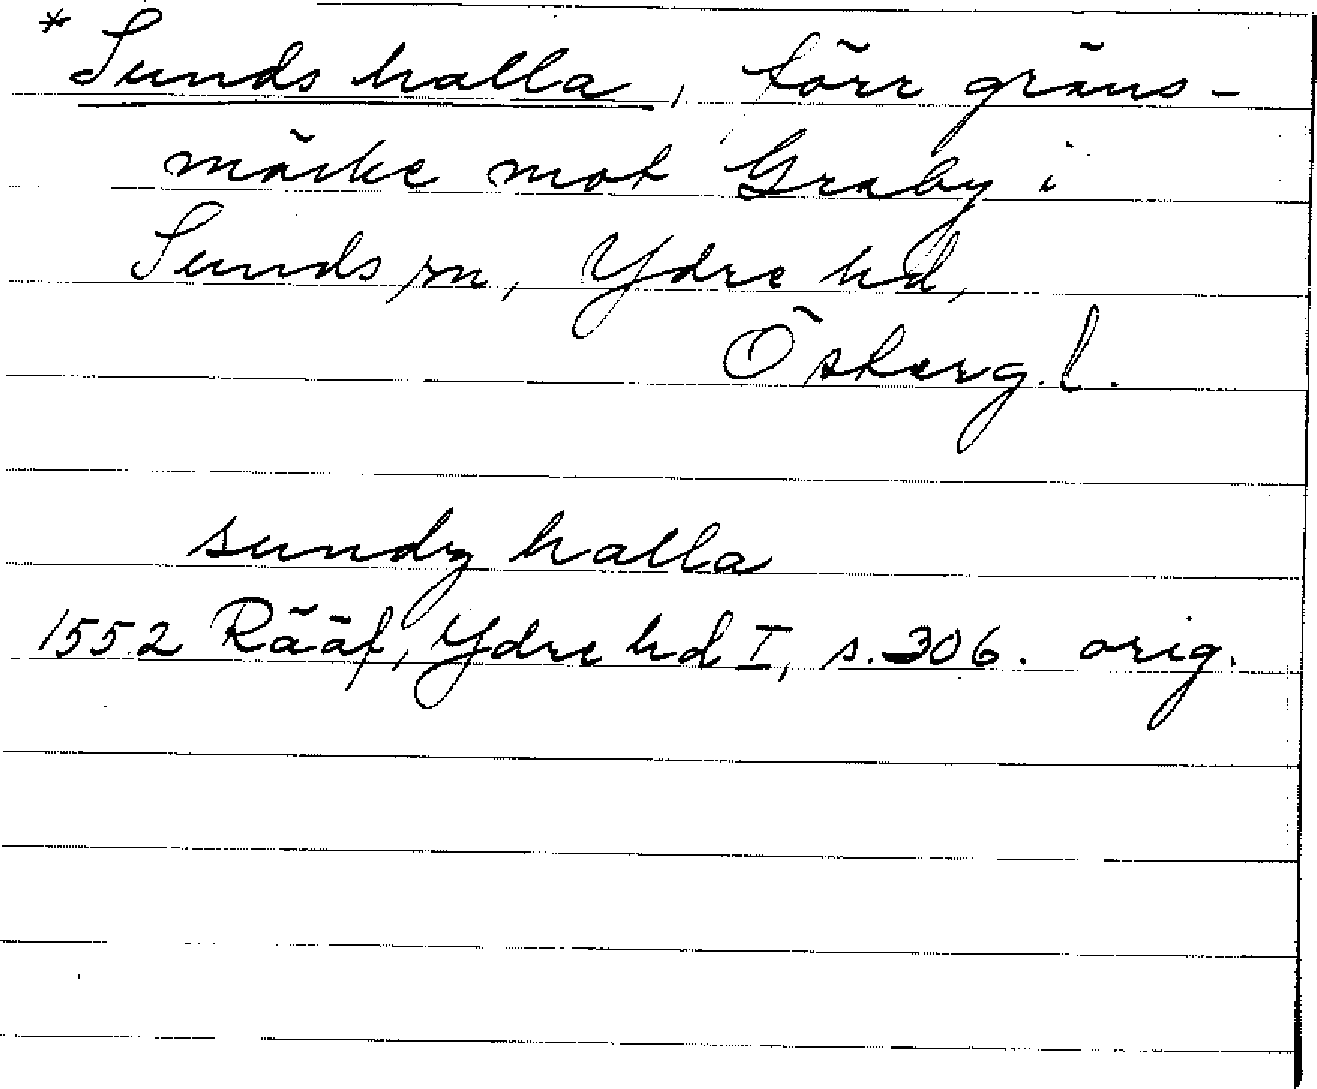 * Sunds halla, förr gräns-
märke mot Graby i
Sunds sn, Ydre hd,
Österg. l.
sundz halla
1552 Rääf, Ydre hd I, s. 306. orig.